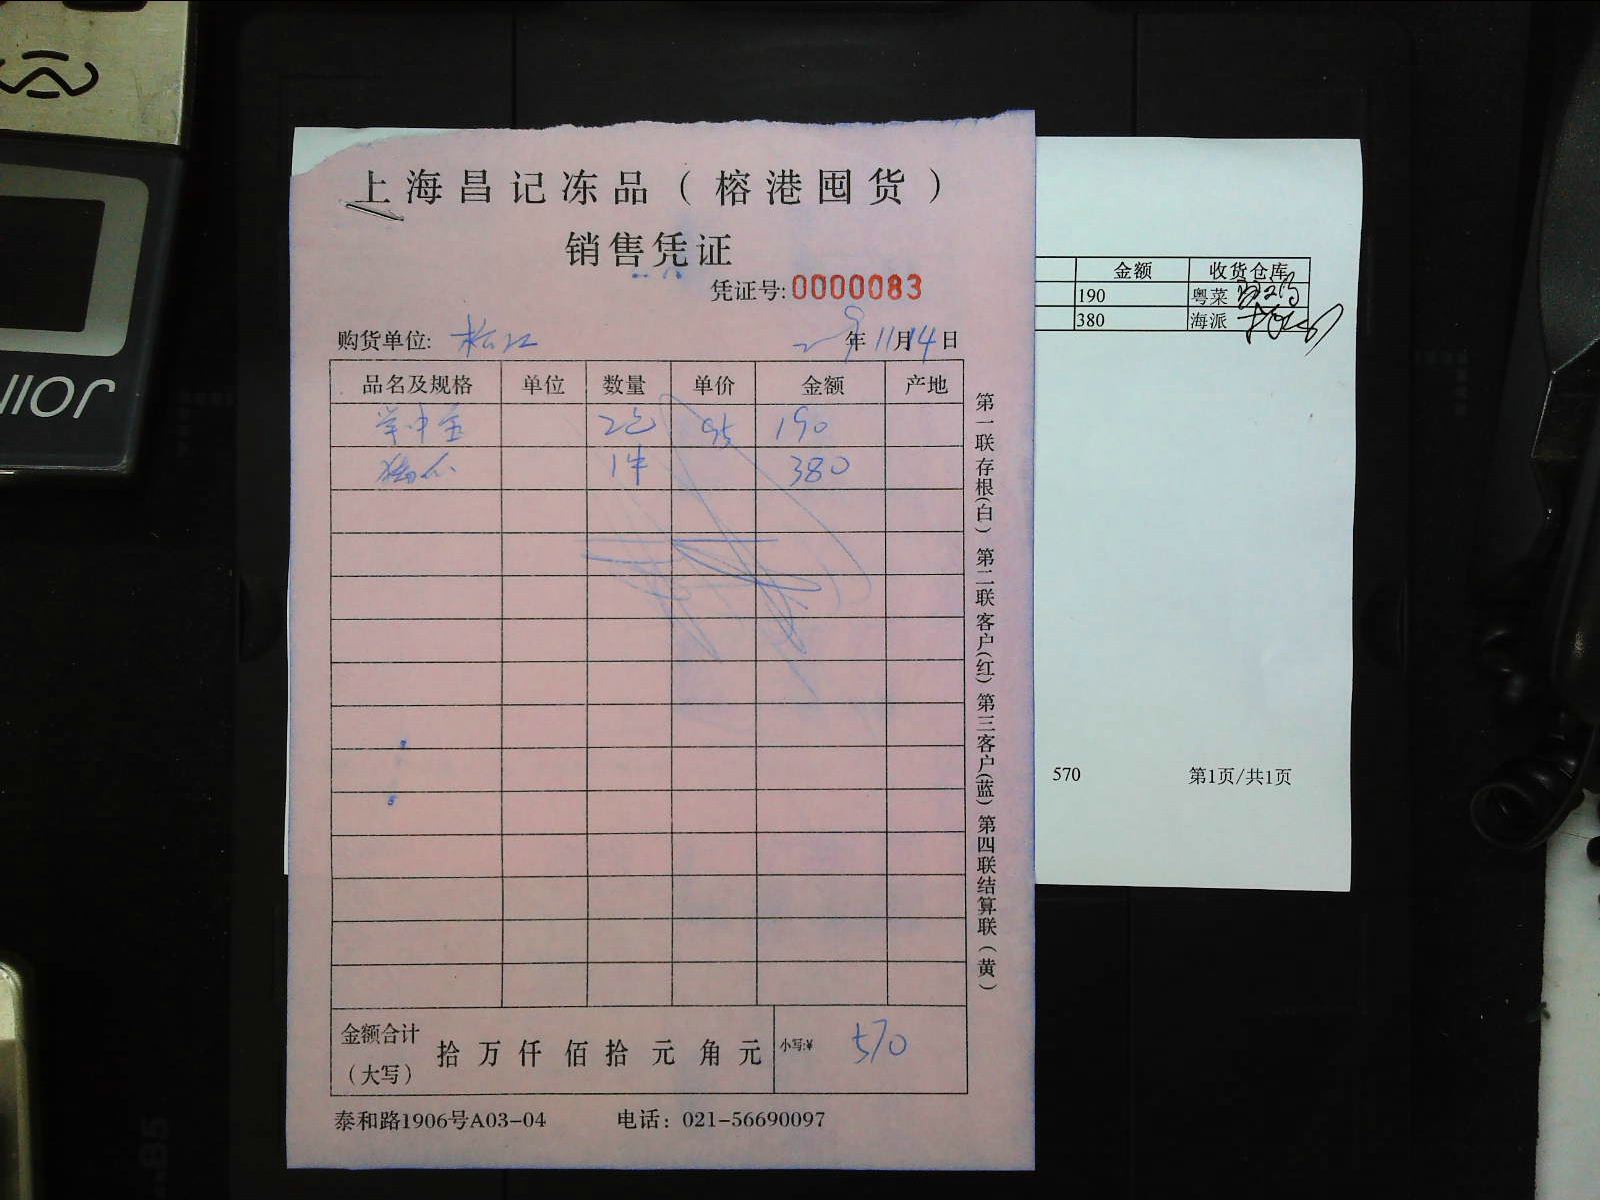 上海昌记冻品(榕港囤货)
销售凭证
凭证号:0000083
购货单位: 松江 年11月14日
品名及规格 单位 数量 单价 金额 产地
2包 95 190
1件 380
金额合计(大写) 拾 万 仟 佰 拾 元 角 元 小写:¥ 570
泰和路1906号A03-04 电话: 021-56690097
第一联存根(白) 第二联客户(红) 第三客户(蓝) 第四联结算联(黄)
金额 收货仓库
190 粤菜
380 海派
570 第1页/共1页